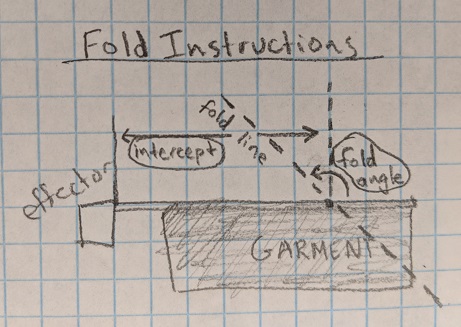 Fold Instructions
fold line
intercept
fold
angle
effector
GARMENT